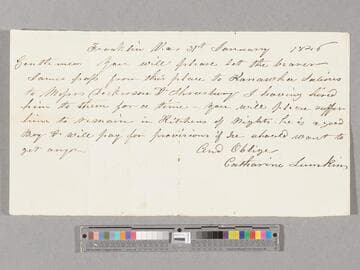 Franklin Va. 31st January 1826
Gentlemen You will please let the bearer
James pass from this place to Kanawha Salines
to Messrs Dickinson & Shrewsbury I having hired
him to them for a time - You will please suffer
him to remain in Kitchens of Nights he is a good
Boy & will pay for provisions if he should want to
get any
And Oblige
Catharine Lumkins